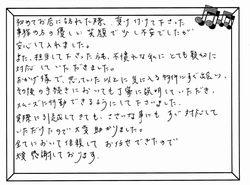 初めてお店に訪れた際、受け付けて下さった
事務の方の優しい笑顔で少し不安でしたが
安心して入れました。
また、担当して下さった方も、不慣れな私にとても親切に
対応していただきました。
おかげ様で、思っていた以上に気に入る物件にすぐ出会い、
その後の手続きにおいても丁寧に説明していただき、
スムーズに行動できるようにして下さいました。
実際に引越してきても、ささいな事にもすぐ対応して
いただけたので大変助かりました。
全てにおいて信頼してお任せできたので
大変感謝しております。